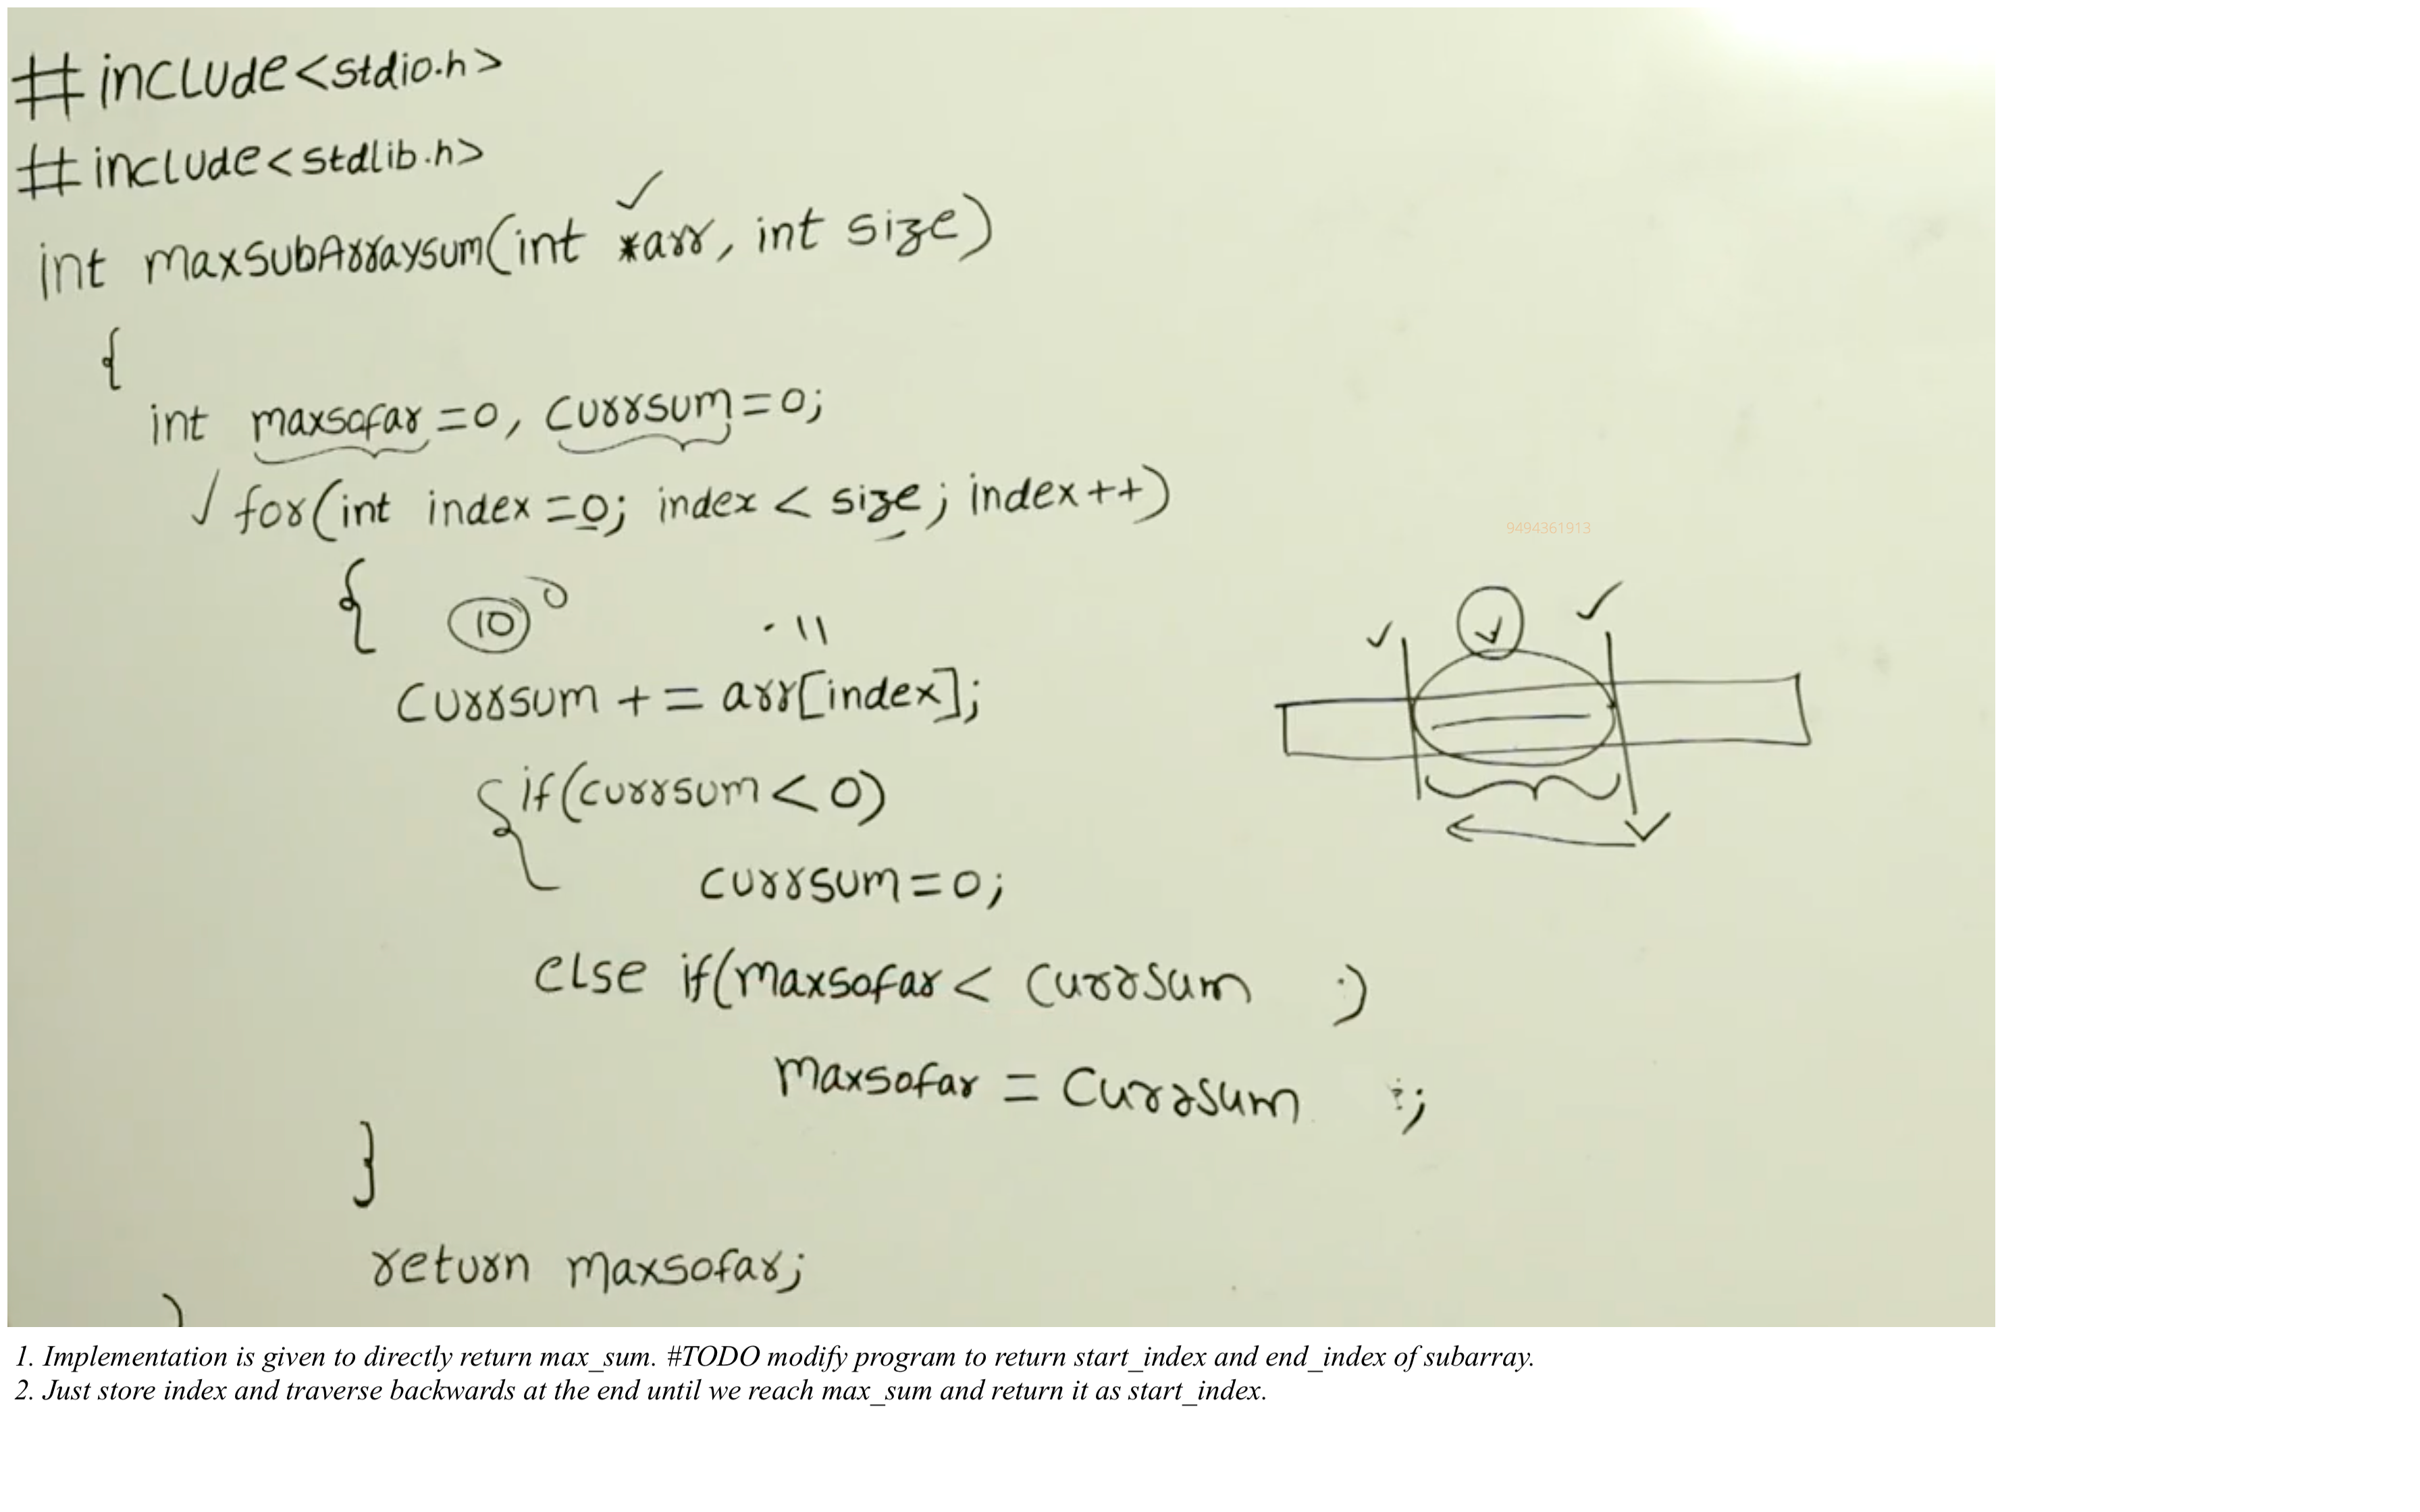 #include<stdio.h>
#include<stdlib.h>
int maxsubArraysum(int *arr, int size)
{
int maxsofar=0, currsum=0;
for(int index=0; index < size; index++)
9494361913
{ 10 0
- 11
currsum += arr[index];
if(currsum<0)
currsum=0;
else if(maxsofar< currsum )
maxsofar = currsum ;
}
return maxsofar;
1. Implementation is given to directly return max_sum. #TODO modify program to return start_index and end_index of subarray.
2. Just store index and traverse backwards at the end until we reach max_sum and return it as start_index.